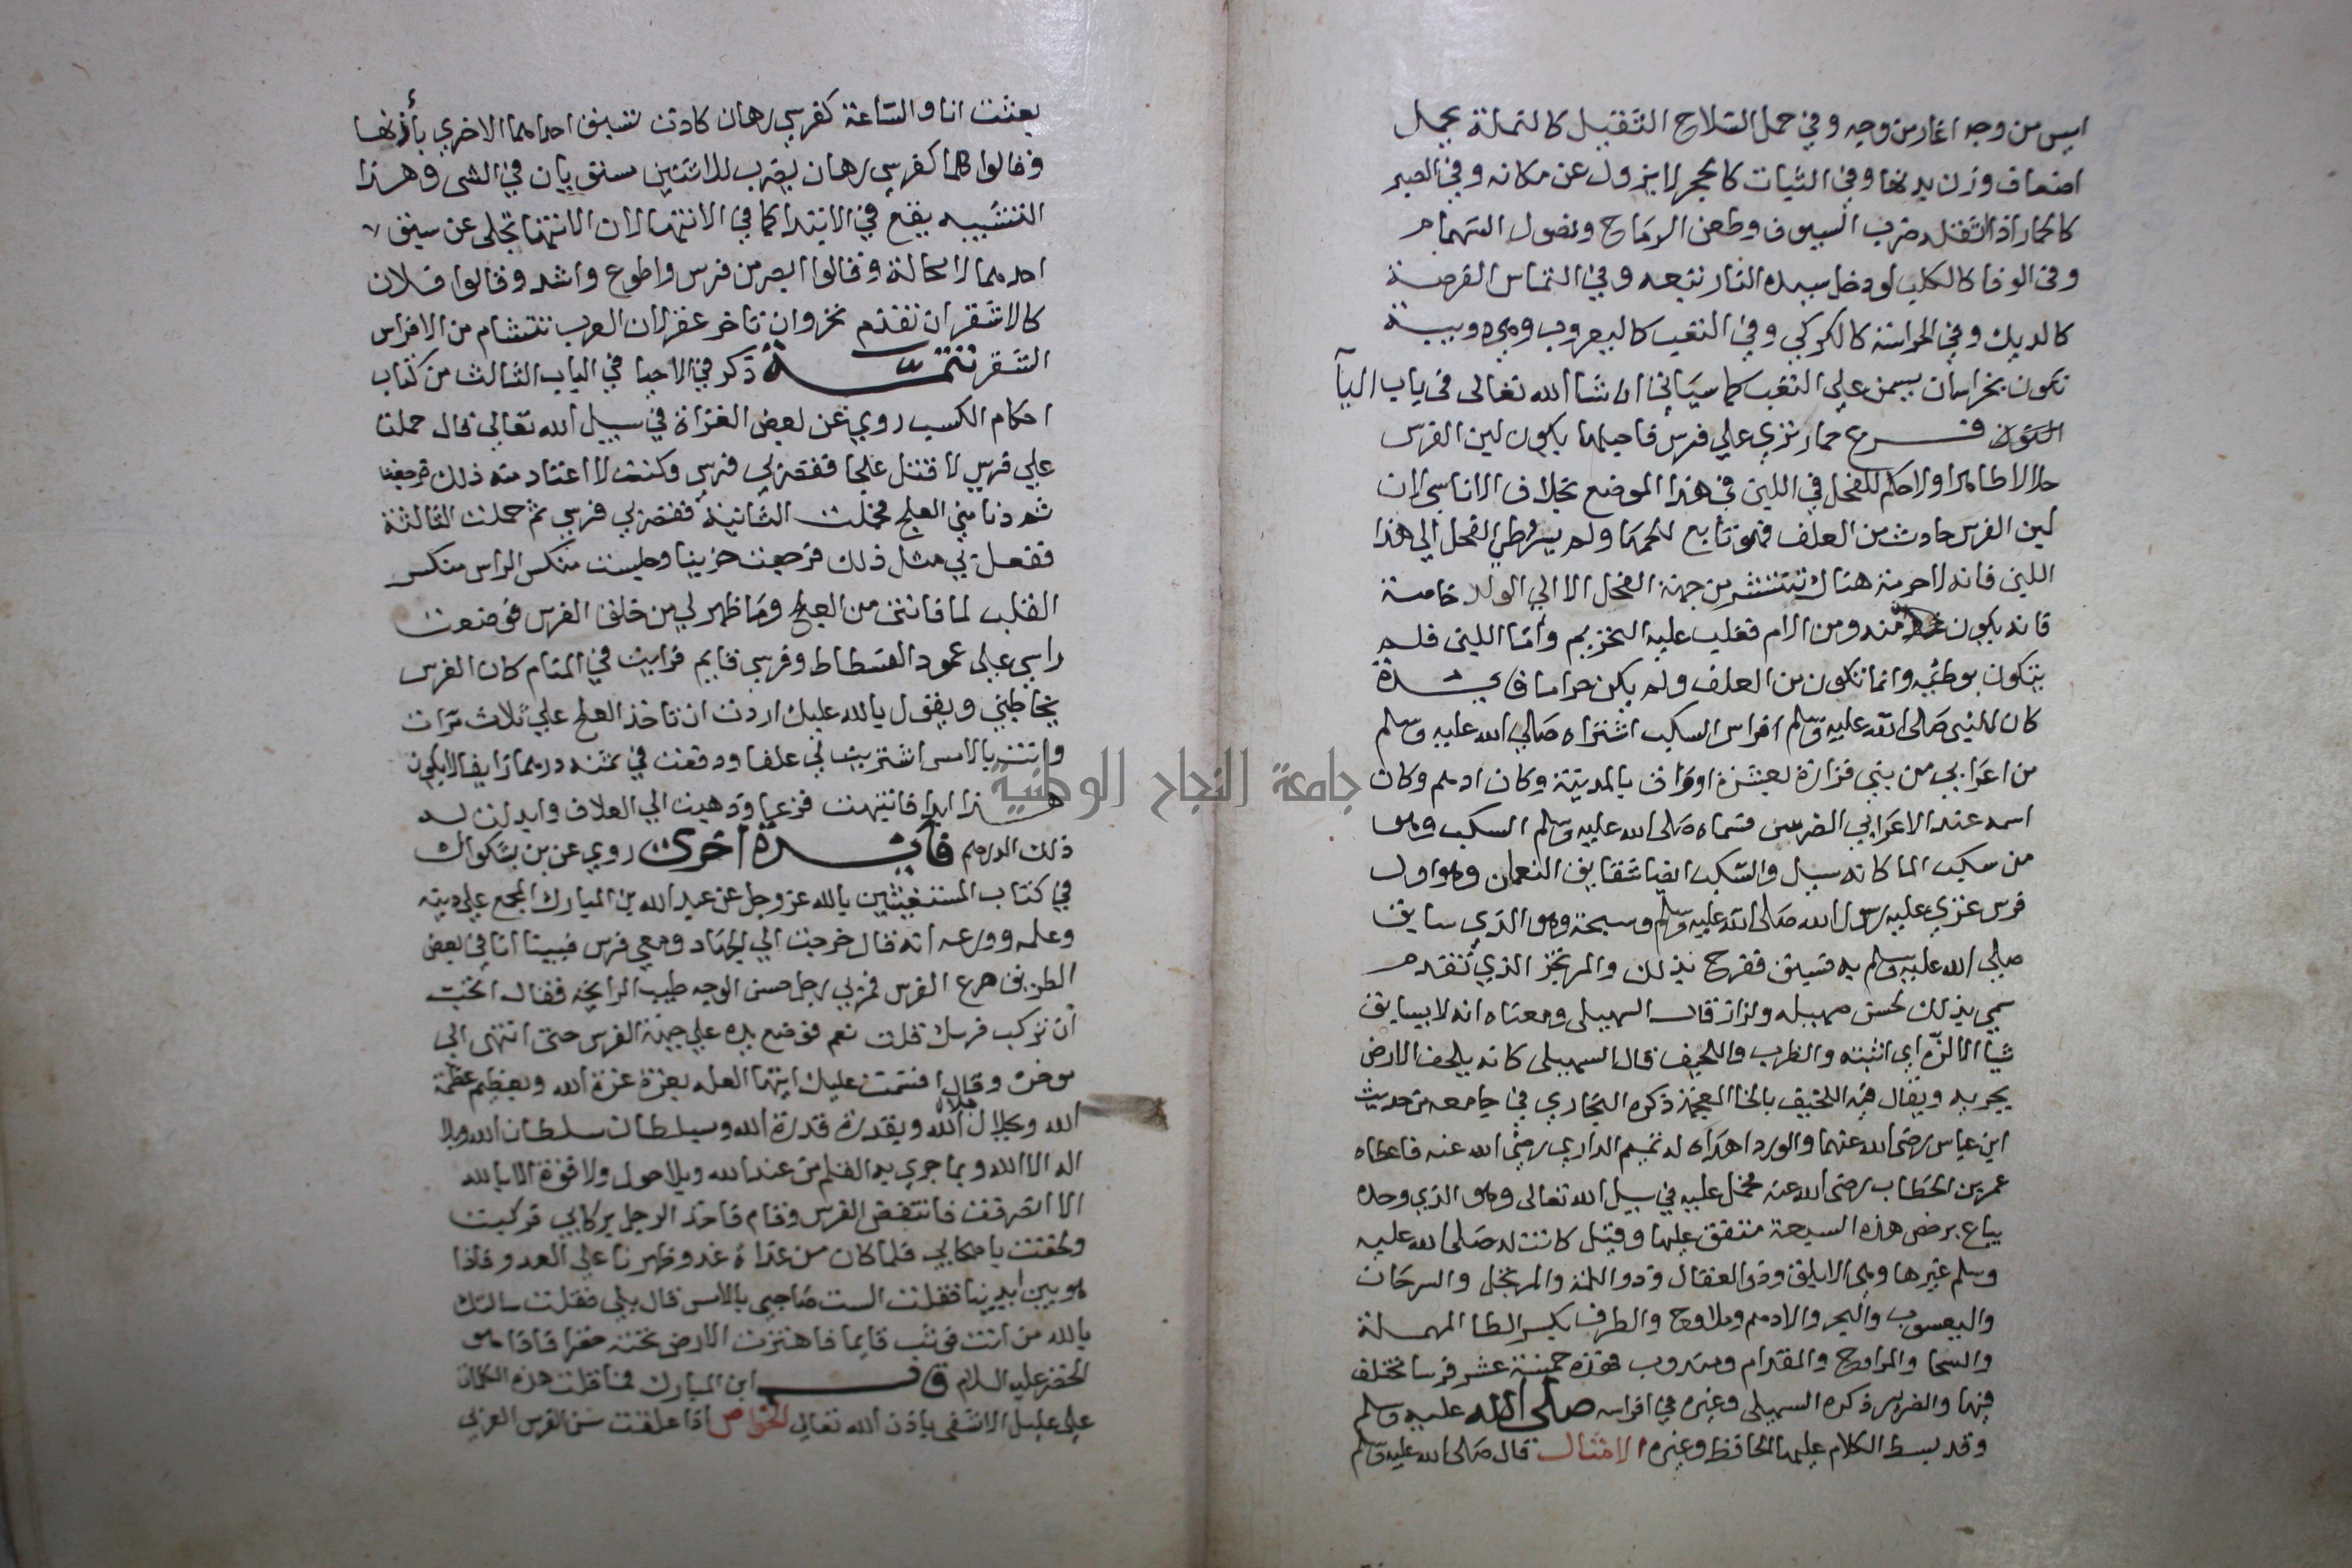 ايس من وجه اغار من وجه وفي حمل السلاح الثقيل كالنملة تحمل
اضعاف وزن بدنها وفي الثبات كالحجر لا يزول عن مكانه وفي الصبر
كالحمار اذا اثقله ضرب السيوف وطعن الرماح ونصول السهام
وفي الوفا كالكلب لو دخل سيده النار تبعه وفي التماس الفرصة
كالديك وفي الحراسة كالكركي وفي التعب كاليعروب وهي دويبة
تكون بخراسان يسمن على التعب كما سياتي ان شا الله تعالى في باب اليآ
فرع حمار نزي علي فرس فاحبلها يكون لبن الفرس
حلالا طاهرا ولا حكم للفحل في اللبن في هذا الموضع بخلاف الاناسي لان
لبن الفرس حادث من العلف فهو تابع للحمها ولم يسر وطي الفحل الي هذا
اللبن فانه لا حرمة هناك تنتشر من جهة الفحل الا الي الولد خاصة
فانه يكون منه ومن الام فغلب عليه التحريم واما اللبن فلم
يتكون بوطئه وانما تكون من العلف ولم يكن حراما فايدة
كان للنبي صلى الله عليه وسلم افراس السكب اشتراه صلى الله عليه وسلم
من اعرابي من بني فزارة بعشرة اواق بالمدينة وكان ادهم وكان
اسمه عند الاعرابي الضرس فسماه صلى الله عليه وسلم السكب وهو
من سكب الما كانه سيل والسكب ايضا شقايق النعمان وهو اول
فرس غزي عليه رسول الله صلى الله عليه وسلم وسبحة وهو الذي سابق
صلى الله عليه وسلم به فسبق ففرح بذلك والمرتجز الذي تقدم
سمي بذلك لحسن صهيله ولزاز قال السهيلى ومعناه انه لا يسابق
شيا الا لزه اي اثبته والظرب واللحيف قال السهيلى كانه يلحف الارض
بجريه ويقال فيه اللخيف بالخا المعجمة ذكره البخاري في جامعه من حديث
ابن عباس رضى الله عنهما والورد اهداه له تميم الداري رضى الله عنه فاعطاه
عمر بن الخطاب رضى الله عنه فحمل عليه في سبيل الله تعالى وهو الذي وجده
يباع برخص هذه السبعة متفق عليها وقيل كانت له صلى الله عليه
وسلم غيرها وهي الابلق وذو العقال وذو اللمة والمرتجل والسرحان
واليعسوب والبحر والادهم وملاوح والطرف بكسر الطا المهملة
والسحا والمراوح والمقدام ومندوب فهذه خمسة عشر فرسا مختلف
فيها والضرير ذكره السهيلى وغيره في افراسه صلى الله عليه وسلم
وقد بسط الكلام عليها الحافظ وغيره الامثال قال صلى الله عليه وسلم
بعثت انا والساعة كفرسي رهان كادت تسبق احداهما الاخري بأذنها
وقالوا هما كفرسي رهان يضرب للاثنين مستويان في الشى وهذا
التشبيه يقع في الابتدا كما في الانتها لان الانتها تجلى عن سبق
احدهما لا محالة وقالوا ابصر من فرس واطوع واشد وقالوا فلان
كالاشقر ان تقدم نحر وان تاخر عقر لان العرب تتشام من الافراس
الشقر تتمــة ذكر في الاحيا في الباب الثالث من كتاب
احكام الكسب روي عن بعض الغزاة في سبيل الله تعالى قال حملت
علي فرسي لاقتل علجا فقصر بي فرسي وكنت لا اعتاد منه ذلك فرجعت
ثم دنا مني العلج فحملت الثانية فقصر بي فرسي ثم حملت الثالثة
ففعل بي مثل ذلك فرجعت حزينا وجلست منكس الراس منكسر
القلب لما فاتني من العلج وما ظهر لي من خلق الفرس فوضعت
راسي على عمود الفسطاط وفرسي قايم فرايت في المنام كان الفرس
يخاطبني ويقول بالله عليك اردت ان تاخذ العلج علي ثلاث مرات
وانت بالامس اشتريت لي علفا ودفعت في ثمنه درهما زايفا لا يكون
هــذا ابدا فانتبهت فزعا وذهبت الي العلاف وابدلت له
ذلك الدرهم فايدة اخرى روي عن بن بشكوال
في كتاب المستغيثين بالله عز وجل عن عبد الله بن المبارك المجمع على دينه
وعلمه وورعه انه قال خرجت الي الجهاد ومعي فرس فبينا انا في بعض
الطريق صرع الفرس فمر بي رجل حسن الوجه طيب الرايحة فقال اتحب
ان تركب فرسك قلت نعم فوضع يده علي جبهة الفرس حتى انتهى الي
موخره وقال اقسمت عليك ايتها العلة بعزة عزة الله وبعظم عظمة
الله وبجلال جلال الله وبقدرة قدرة الله وبسلطان سلطان الله وبلا
اله الا الله وبما جري به القلم من عند الله وبلا حول ولا قوة الا بالله
الا انصرفت فانتفض الفرس وقام فاخذ الرجل بركابي فركبت
ولحقت باصحابي فلما كان من غداة غد وظهرنا علي العدو فاذا
هو بين ايدينا فقلت الست صاحبي بالامس قال بلي فقلت سالتك
بالله من انت فوثب قايما فاهتزت الارض تحته خضرا فاذا هو
الخضر عليه السلام قـال ابن المبارك فما قلت هذه الكلمات
علي عليل الا شفى باذن الله تعالى الخواص اذا علقت سن الفرس العربي
جامعة النجاح الوطنية